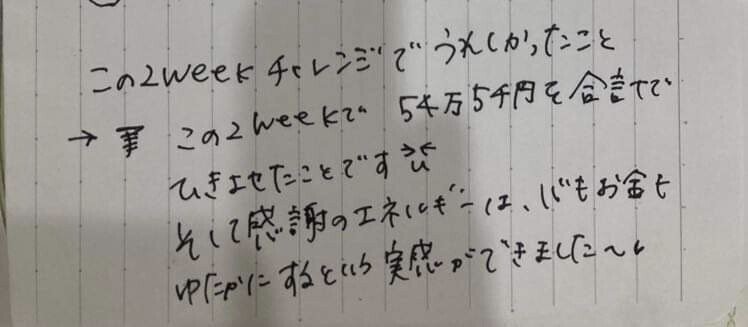 この2weekチャレンジでうれしかったこと
→ この2weekで 54万5千円を合計で
ひきよせたことです
そして感謝のエネルギーは、心もお金も
ゆたかにするという実感ができました〜!